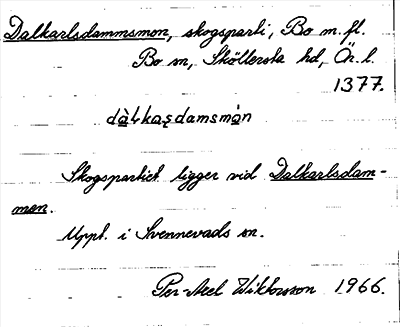 Dalkarlsdammsmon, skogsparti, Bo m.fl.
Bo sn, Sköllersta hd, Ör. l.
1377.
dàlkaʂdamsmòn
Skogspartiet ligger vid Dalkarlsdam-
men.
Uppt. i Svennevads sn.
Per-Axel Wiktorsson 1966.